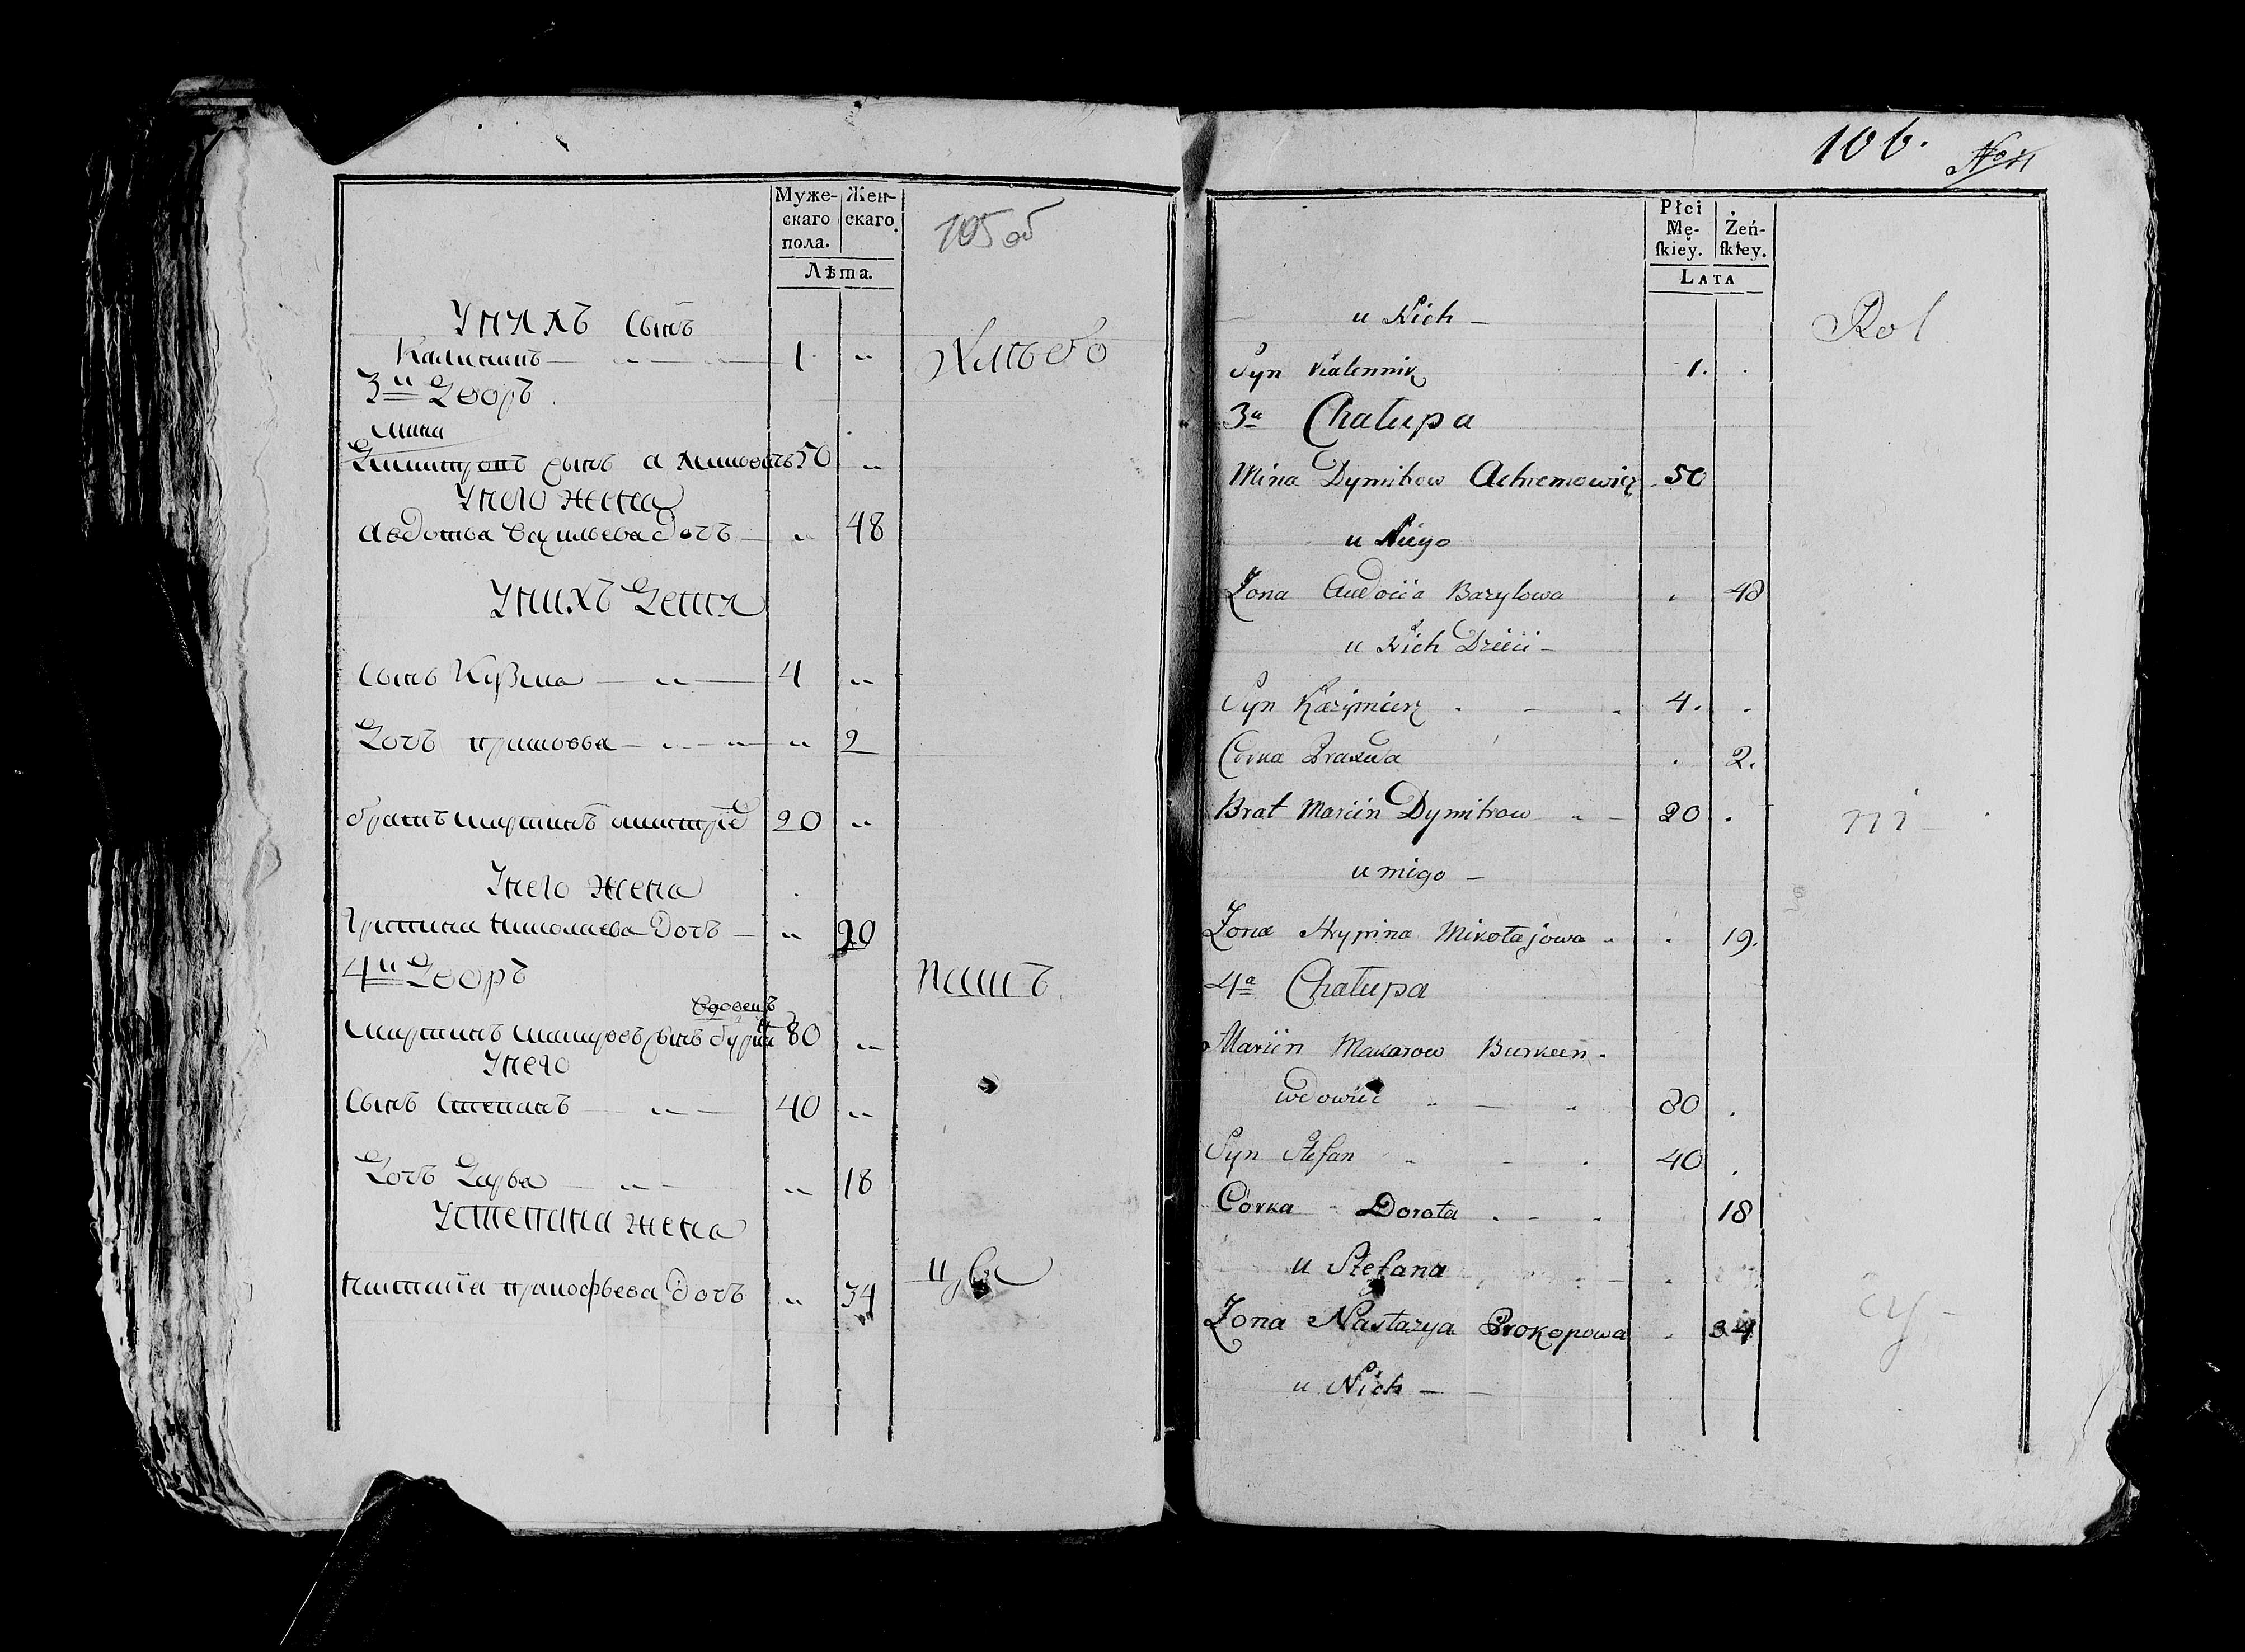 Муже-
скаго
пола.
Жен-
скаго.
Лѣта.
105 об
У нихъ сынъ
Калининъ 1.
хлѣбо
3й Дворъ
Мина
сынъ 50
У него жена
Авдотья Васильева дочь 48
У нихъ Дети
сынъ Кузма 4
Дочь 2
братъ мартинъ 20
У него жена
Николаева дочь 20
4й Дворъ
пашъ
вдовецъ
Мартинъ сынъ 80
У него
Сынъ Степанъ 40
Дочь Дарья 18
У Степана жена
Настасия прокофьева дочь 34
106.
Płci
Mę-
ſkiey.
Żeń-
ſkiey.
LATA
u Nich
Rol
Syn Kalennik 1.
3a Chałupa
Mina Dymitrow Achremowicz 50
u Niego
Zona Audocia Bazylowa 48
u Nich Dzieci
Syn Kazimierz 4.
Corka Praxeda 2.
Brat Marcin Dymitrow 20
ni
u niego
Zona Hrypina Mikołajowa 19.
4a Chałupa
Marcin Makarow Burken.
wdowiec 80
Syn Stefan 40
Córka Dorota 18
u Stefana
Zona Nastazya Prokopowa 34
cy
u Nich